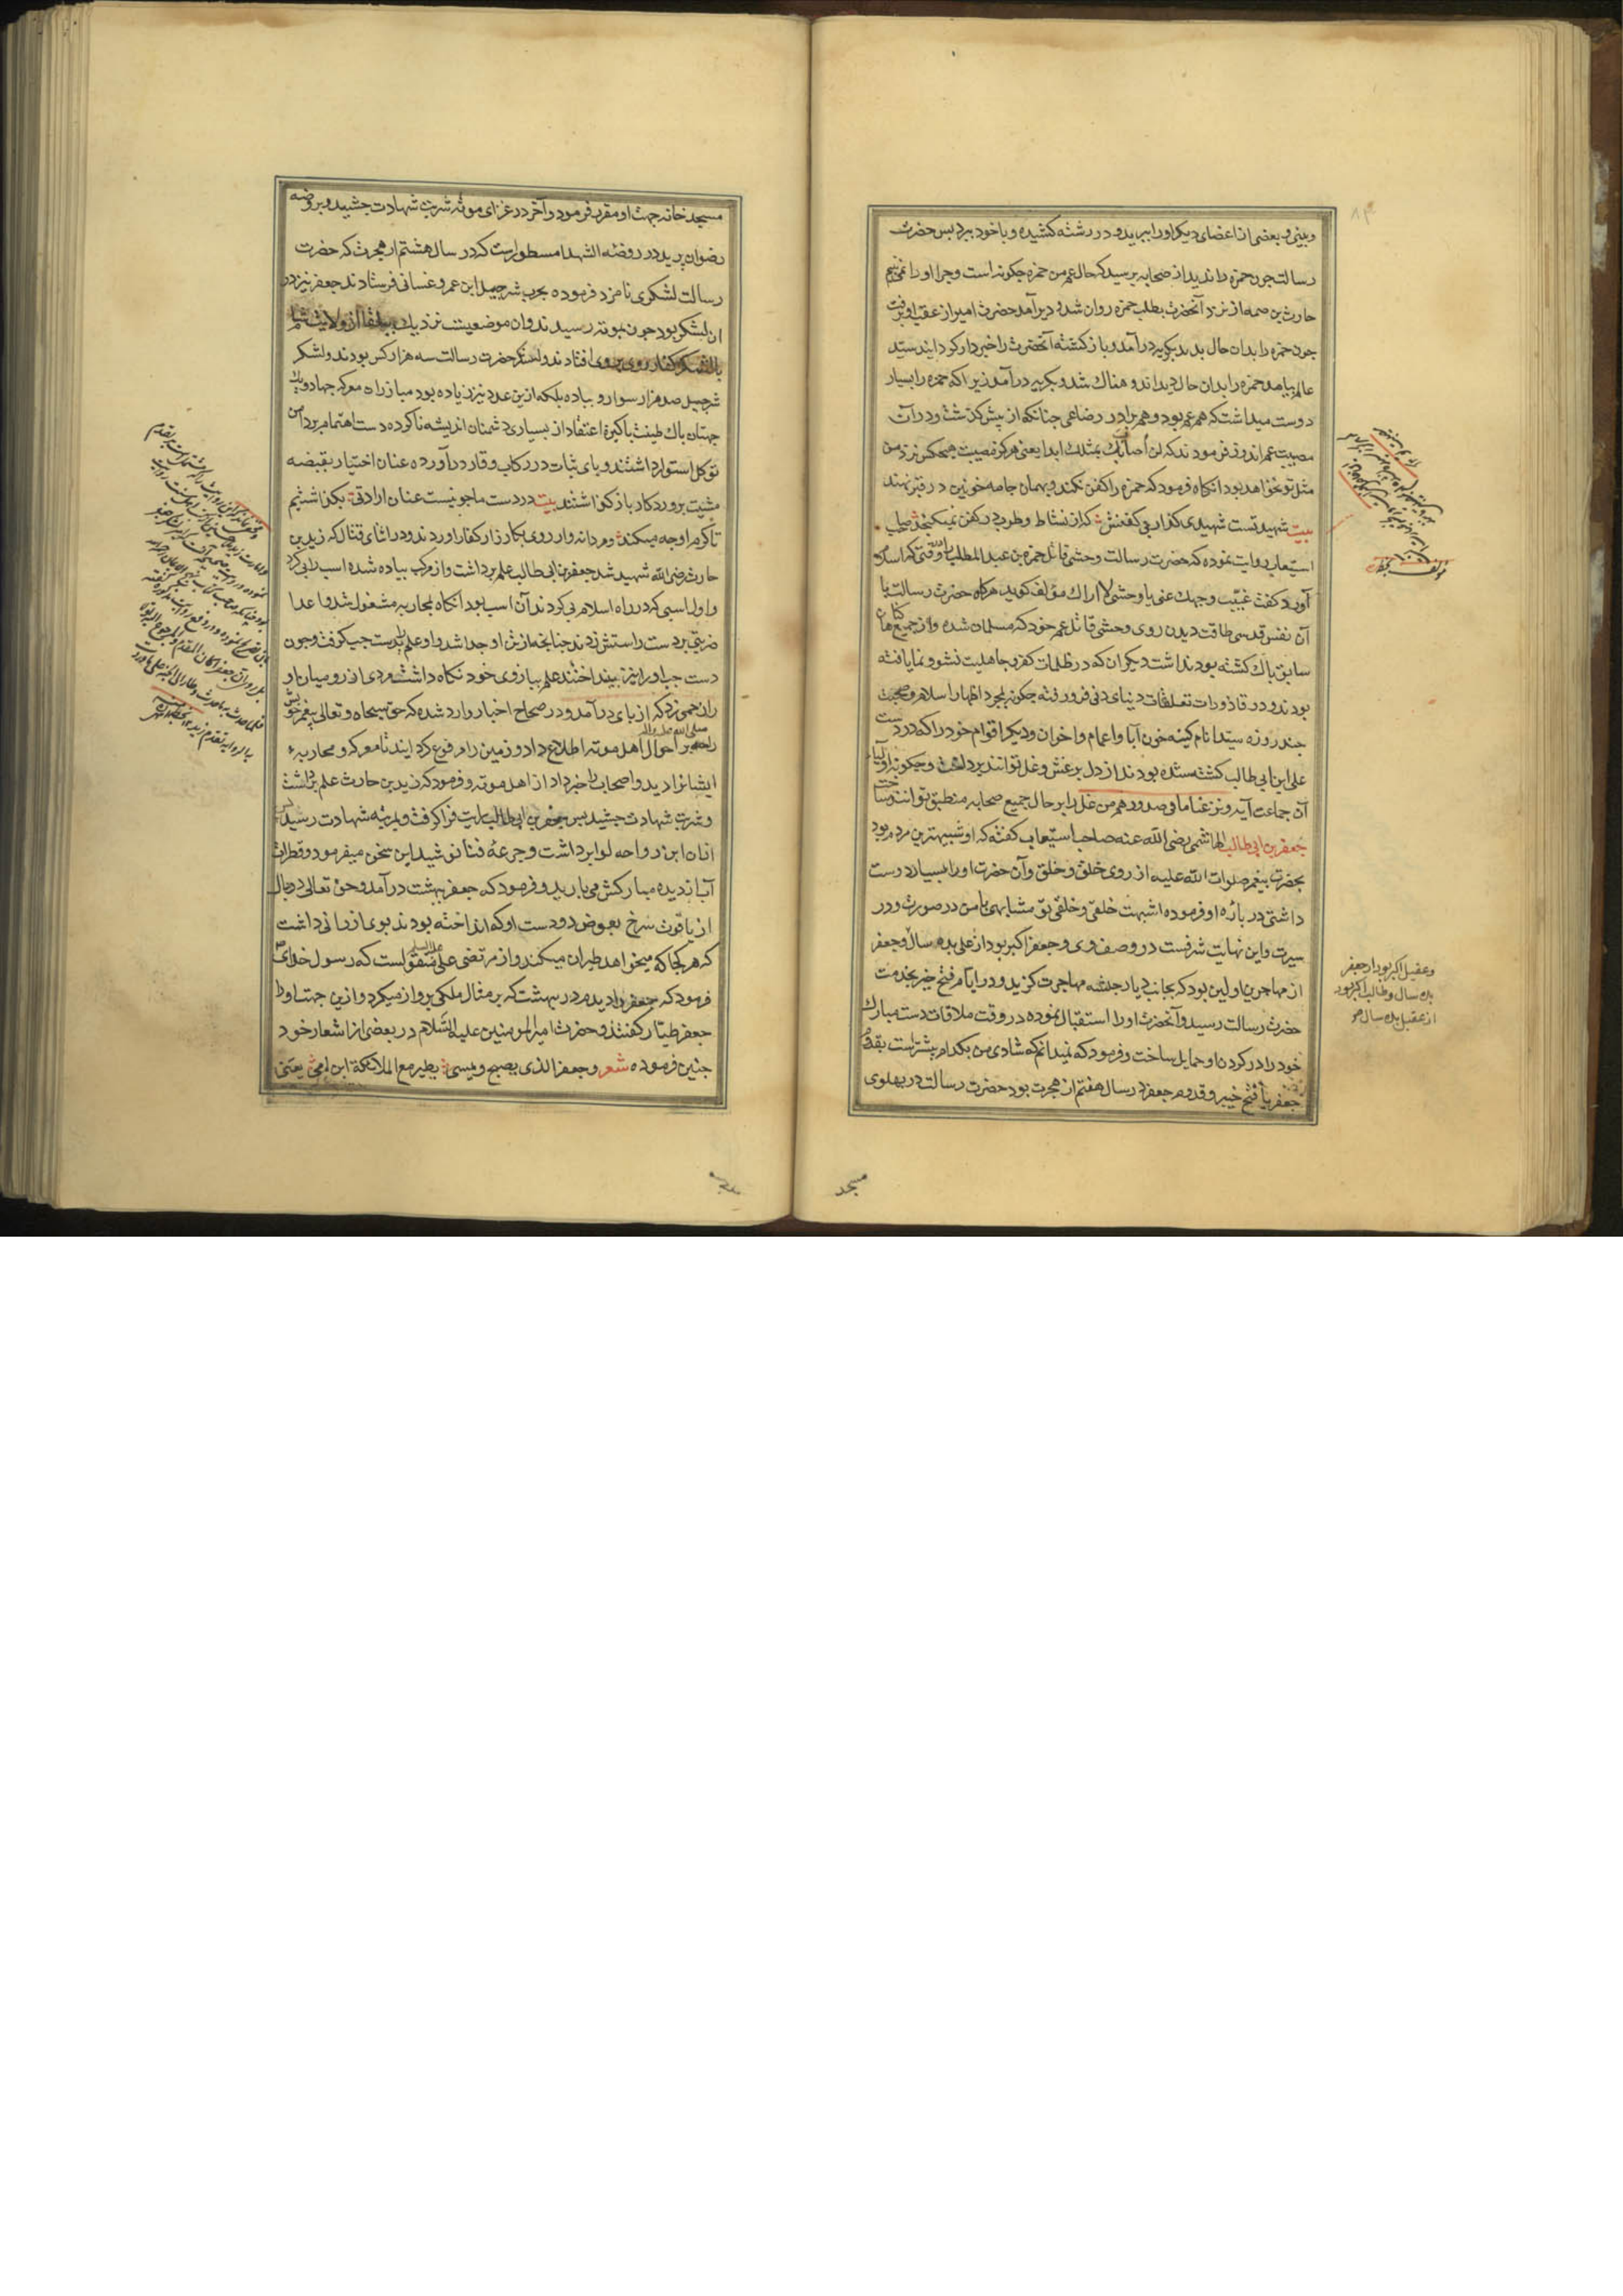 وبینی و بعضی از اعضای دیگر او را ببرید و در رشته کشیده و با خود ببرد پس حضرت
رسالت چون حمزه را ندید از صحابه پرسید که حال عم من حمزه چگونه است و چرا او را نمی بینم
حارث بن صمه از نزد آنحضرت بطلب حمزه روان شد و دیر آمد حضرت امیر از عقب او برفت
چون حمزه را بدان حال بدید بگریه درآمد و بازگشته آنحضرت را خبردار گردانید سید
عالم بیامد حمزه را بدان حال دید اندوهناک شد و بگریه درآمد زیرا که حمزه را بسیار
دوست میداشت که هم عم بود و هم برادر رضاعی چنانکه از پیش گذشت و در آن
مصیبت عم اندوق فرمودند که لن اصاب بمثلک ابدا یعنی هرگز مصیبت هیچکس نزد من
مثل تو نخواهد بود آنگاه فرمود که حمزه را کفن نکنند و بهمان جامه خونین در قبر نهند
بیت شهید تست شهیدی کذار بی کفنش که از نشاط و طرب در کفن نمیگنجد صاحب
استیعاب روایت نموده که حضرت رسالت وحشی قاتل حمزه بن عبد المطلب را وقتی که اسلام
آورد گفت غیب وجهک عنی یا وحشی لا اراک مؤلف گوید هرگاه حضرت رسالت با
آن نفس قدسی طاقت دیدن روی وحشی قاتل عم خود که مسلمان شده و از جمیع گناهان
سابق پاک گشته بود نداشت دیگران که در ظلمات کفر و جاهلیت نشو و نما یافته
بودند و در قاذورات تعلقات دنیای دنی فرو رفته چگونه بمجرد اظهار اسلام و صحبت
چند روزه سید انام کینه خون آبا و اعمام و اخوان و دیگر اقوام خود را که در دست
علی ابن ابی طالب کشته شده بودند از دل پر غش و غل توانند برداشت و چگونه اولیاء
آن جماعت آید و نزعنا ما فی صدورهم من غل را بر حال جمیع صحابه منطبق توانند ساخت
جعفر بن ابی طالب الهاشمی رضی الله عنه صاحب استیعاب گفته که او شبیه ترین مردم بود
بحضرت پیغمبر صلوات الله علیه از روی خلق و خلق و آن حضرت او را بسیار دوست
داشتی در باره او فرموده اشبهت خلقی و خلقی تو مشابهی با من در صورت و در
سیرت و این نهایت شرفست در وصف وی و جعفر اکبر بود از علی بده سال و جعفر
از مهاجرین اولین بود که بجانب دیار حبشه مهاجرت گزید و در ایام فتح خیبر بخدمت
حضرت رسالت رسید و آنحضرت او را استقبال نموده در وقت ملاقات دست مبارک
خود را در گردن او حمایل ساخت و فرمود که نمیدانم که شادی من بکدام بیشتر است بقدوم
جعفر یا فتح خیبر و قدوم جعفر در سال هفتم از هجرت بود حضرت رسالت در پهلوی
وعقیل اکبر بود از جعفر
بده سال و طالب اکبر بود
از عقیل بده سال
مسجد
مسجد خانه جهت او مقرر فرمود و آخر در غزای موته شربت شهادت چشید و بروضه
رضوان پرید در روضه الشهدا مسطور است که در سال هشتم از هجرت که حضرت
رسالت لشکری نامزد فرموده بحرب شرحبیل ابن عمرو غسانی فرستادند جعفر نیز در
ان لشکر بود چون بموته رسیدند و ان موضعیست نزدیک ببلقا از ولایت شام
با لشکر کفار روی بروی افتادند و لشکر حضرت رسالت سه هزار کس بودند و لشکر
شرحبیل صد هزار سوار و پیاده بلکه ازین عدد نیز زیاده بود مبارزان معرکه جهاد و
جهتان پاک طینت پاکیزه اعتقاد از بسیاری دشمنان اندیشه ناکرده دست اهتمام بر دامن
توکل استوار داشتند و پای ثبات در رکاب وقار درآورده عنان اختیار بقبضه
مشیت پروردکار باز گذاشتند بیت در دست ما چو نیست عنان ارادتی بگذاشتیم
تا کرم او چه میکند و مردانه وار روی بکارزار کفار اوردند و در اثنای قتال که زید بن
حارث رضی الله شهید شد جعفر بن ابی طالب علم برداشت و از مرکب پیاده شده اسب را پی کرد
و اول اسبی که در راه اسلام پی کردند آن اسب بود انگاه بمحاربه مشغول شد و اعدا
ضربتی بر دست راستش زدند چنانچه از تن او جدا شد و او علم را بدست چپ گرفت و چون
دست چپ او را نیز بینداختند علم ببازوی خود نگاه داشت مردی از رومیان او
ران خمی زد که از پای درآمد و در صحاح اخبار وارد شده که حق سبحانه و تعالی پیغمبر خویش
صلی الله علیه واله
را بر احوال اهل موته اطلاع داد و زمین را مرفوع گردانید تا معرکه و محاربهء
ایشانرا دید و اصحاب را خبر داد از اهل موته و فرمود که زید بن حارث علم برداشت
و شربت شهادت چشید پس جعفر بن ابی طالب رایت فرا گرفت و بمرتبه شهادت رسید پس
از ان ابن رواحه لوا برداشت و جرعه فنا نوشید این سخن میفرمود و قطرات
آب از دیده مبارکش می بارید و فرمود که جعفر ببهشت درآمد و حق تعالی دو بال
از یاقوت سرخ بعوض دو دست او که انداخته بودند بوی ارزانی داشت
که هر کجا که میخواهد طیران میکند و از مرتضی علی علیه السلم منقولست که رسول خدای
فرمود که جعفر را دیدم در بهشت که بر مثال ملکی پرواز میکرد و ازین جهت او را
جعفر طیار گفتند و حضرت امیر المومنین علیه السلام در بعضی از اشعار خود
چنین فرموده شعر وجعفر الذی یصبح ویمسی یطیر مع الملائکة ابن امی یعنی